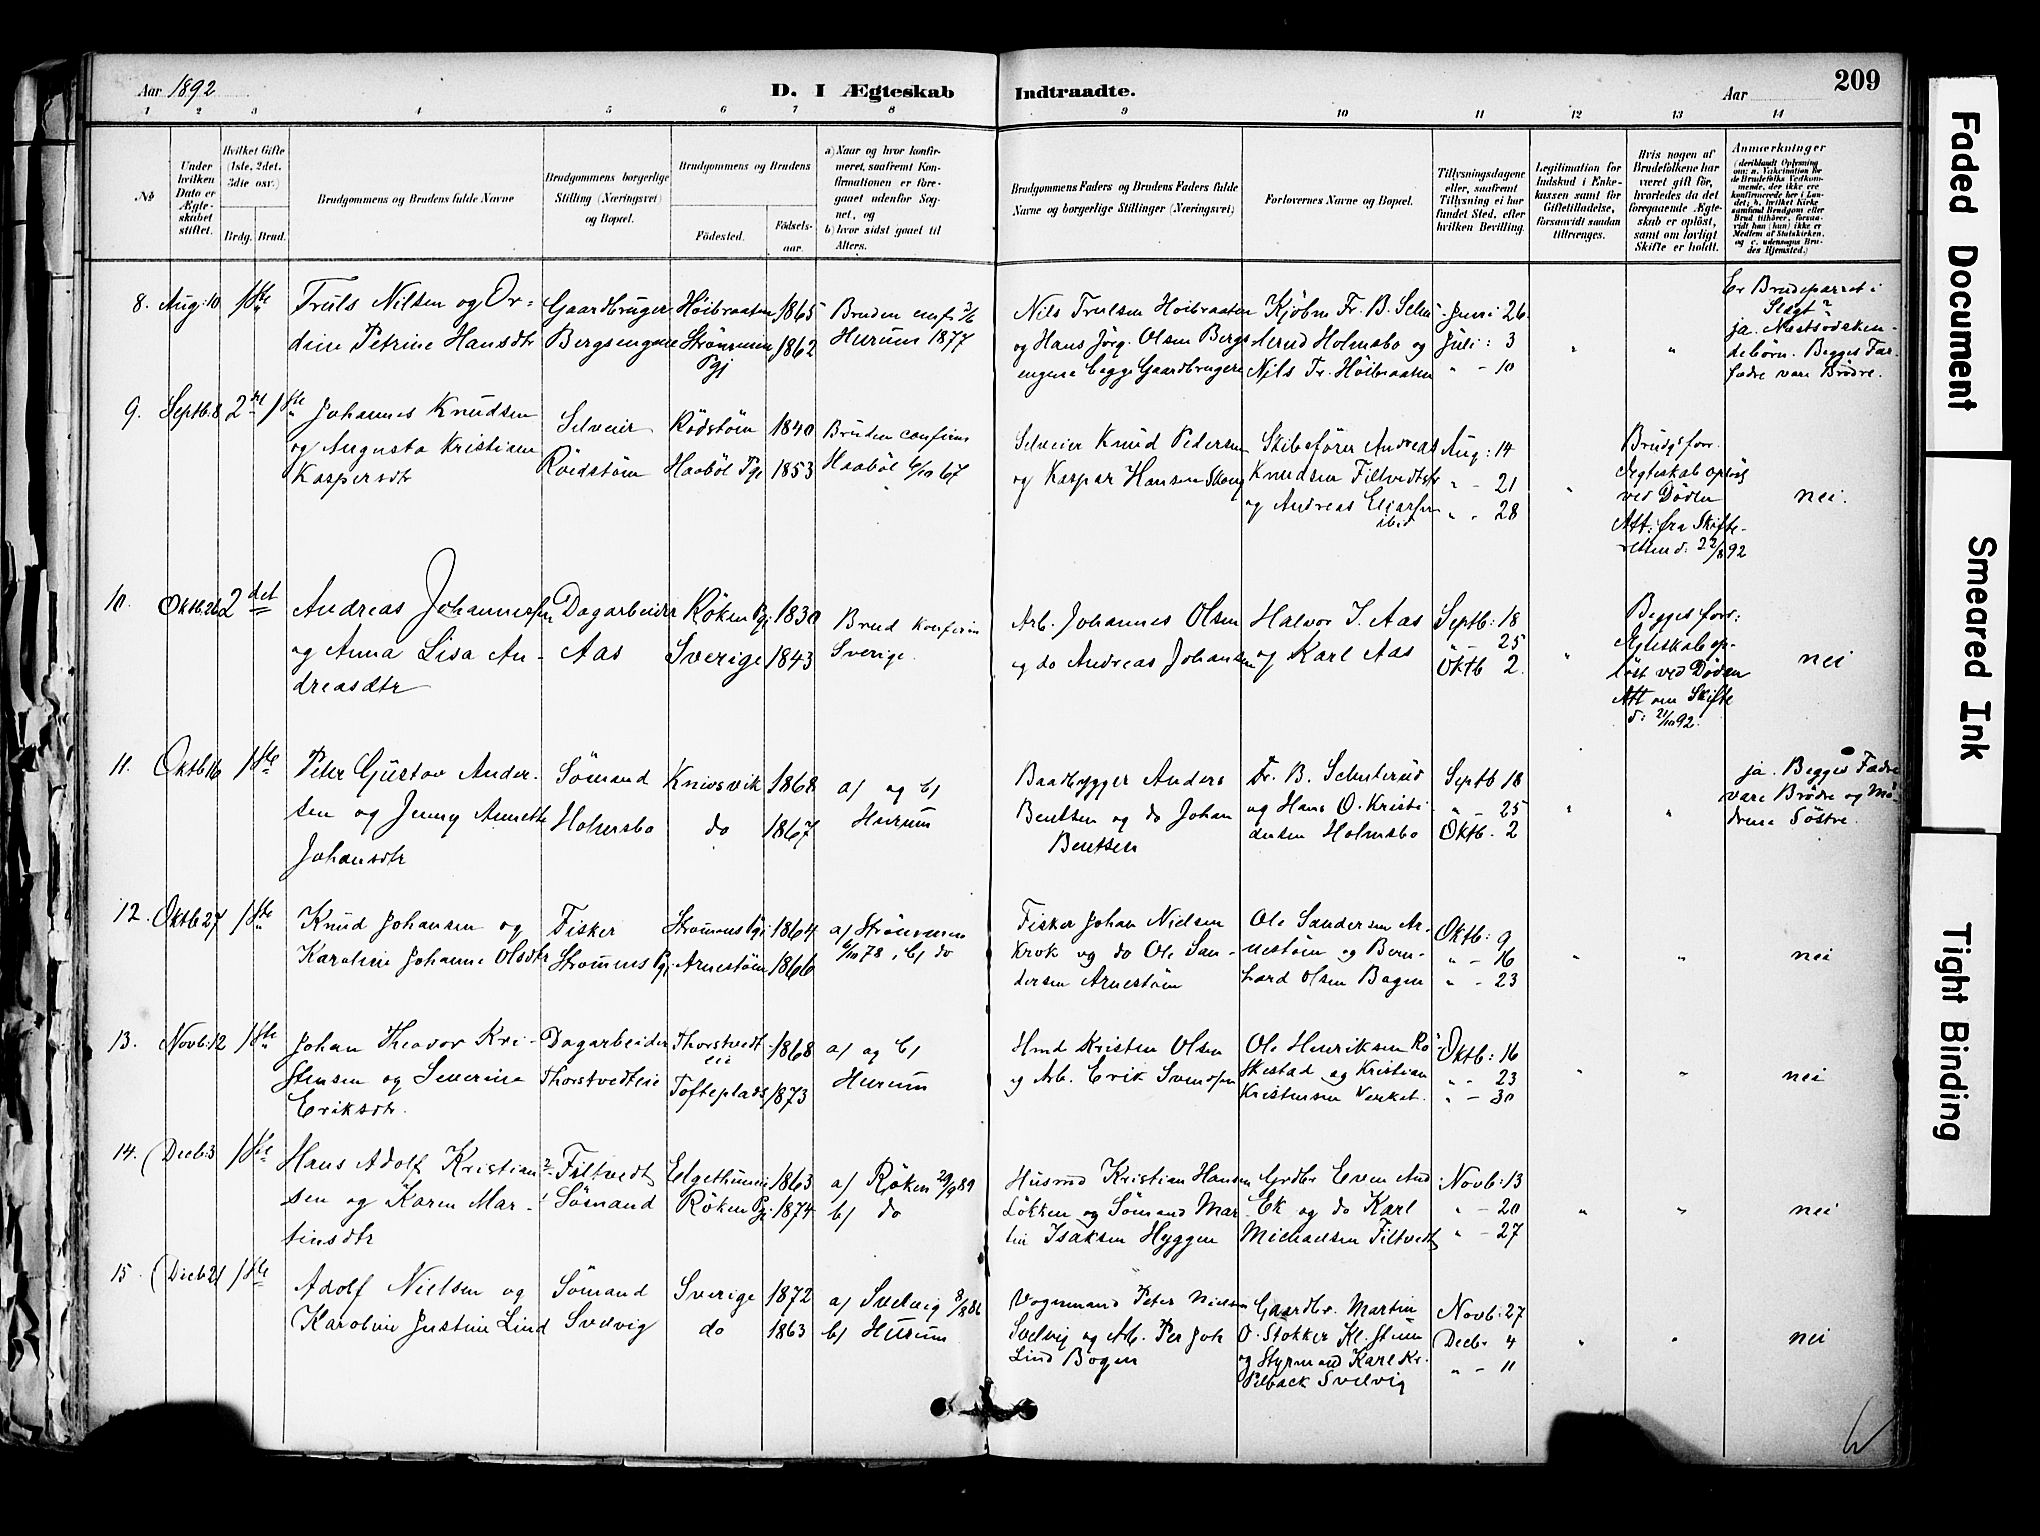 Aar 1892
D. I Ægteskab Indtraadte.
Aar
209
1 2 3 4 5 6 7 8 9 10 11 12 13 14
No
Under hvilken Dato er Ægteskabet stiftet.
Hvilket Gifte (1ste, 2det, 3die osv.)
Brdg. Brud.
Brudgommens og Brudens fulde Navne
Brudgommens borgerlige Stilling (Næringsvei) og Bopæl.
Brudgommens og Brudens
Fødested.
Fødselsaar.
a) Naar og hvor konfirmeret, saafremt Konfirmationen er foregaaet udenfor Sognet, og
b) hvor sidst gaaet til Alters.
Brudgommens Faders og Brudens Faders fulde Navne og borgerlige Stillinger (Næringsvei)
Forlovernes Navne og Bopæl.
Tillysningsdagene eller, saafremt Tillysning ei har fundet Sted, efter hvilken Bevilling.
Legitimation for Indskud i Enkekassen samt for Giftetilladelse, forsaavidt saadan tiltrænges.
Hvis nogen af Brudefolkene har været gift før, hvorledes da det foregaaende Ægteskab er opløst, samt om lovligt Skifte er holdt.
Anmærkninger
8. Aug: 10 1ste Truls Nilsen og Or- Gaardbruger Höibraaten 1865 Bruden
dine Petrine Hansdtr Bergsengene Strömmen Pgj 1862 Hurum 1877
Nils Trulsen Höibraaten Kjöbm Fr. B. Juni: 26
og Hans Jörg. Olsen Bergs- Holmsbo og Juli: 3 " "
engene begge Gaardbrugere Nils Tr. Höibraaten " - 10
Er Brudeparret i
Slægt?
ja. Næstsödsken-
debörn. Begges Far-
fædre vare Brödre.
9. Septb. 8 2det 1ste Johannes Knudsen Selveier Rödstöen 1840 Bruden confirm
og Augusta Kristiane Rödstöen Haaböl Pgj 1853 Haaböl 6/10 67
Kaspersdtr
Selveier Knud Pedersen Skibsförer Andreas Aug: 14
og Kaspar Hansen Skoug Knudsen Filtvedt " - 21 "
og Andreas ibid " " 28
Brudg. forr.
Ægteskab oplöst
ved Döden
Att: fra Skifte-
retten d: 22/8 92
nei.
10. Oktb. 26 2det Andreas Johannessen Dagarbeider Röken Pgj 1830 Brud konfirm
og Anna Lisa An- Aas Sverige 1843 Sverige.
dreasdtr
Arb. Johannes Olsen Halvor J. Aas Septb: 18
og do Andreas Johansen og Karl Aas " - 25
Oktb 2 "
Begges forr:
Ægteskab op-
löst ved Döden
Att om Skifte
nei
11. Oktb 16 1ste Peter Gustav Ander- Sömand Knivsvik 1868 a) og b)
sen og Jenny Annette Holmsbo do 1867 Hurum
Johansdtr
Baadbygger Anders Fr. B. Septb 18
Bentsen og do Johan og Hans O. Kristi- " 25 " "
Bentsen ansen Holmsbo Oktb. 2
ja. Begges Fædre
vare Brödre og Mö-
drene Söstre.
12. Oktb 27 1ste Knud Johansen og Fisker Strömms Pgj 1864 a) Strömmen
Karoline Johanne Olsdtr Strömms Pgj Arnestöen 1866 6/10 78, b) do
Fisker Johan Nielsen Ole Sandersen Ar- Oktb: 9
Krok og do Ole San- nestöen og Bern- " - 16 " " nei
dersen Arnestöen hard Olsen Bogen " - 23
13. Novb: 12 1ste Johan Theodor Kri- Dagarbeider Thorstvedt- 1868 a) og b)
stensen og Severine Thorstvedteie eie Hurum
Eriksdtr. Tofteplads 1873
Hmd Kristen Olsen Ole Henriksen Rö- Oktb: 16
og Arb. Erik Svendsen skestad og Kristian " - 23 " " nei
Kristensen Verket. " - 30
14. Decb: 3 1ste Hans Adolf Kristian- Filtvedt 1863 a) Röken 29/9 89
sen og Karen Mar- Sömand Röken Pgj 1874 b) do
tinsdtr
Husmd Kristian Hansen Grdbr Even And Novb: 13
Lökken og Sömand Mar- Ek og do Karl " - 20 " " nei
tin Isaksen Hyggen Michaelsen Filtvedt " - 27
15. Decb 21 1ste Adolf Nielsen og Sömand Sverige 1872 a) Svelvig
Karoline Justine Lind Svelvig do 1863 b) Hurum
Vognmand Peter Nielsen Gaardbr. Martin Novb: 27
Svelvig og Arb. Per Joh O. Stokker Decb: 4 " " nei
Lind Bogen og Styrmand Karl Kr. " - 11
Svelvig
Faded Document
Smeared Ink
Tight Binding